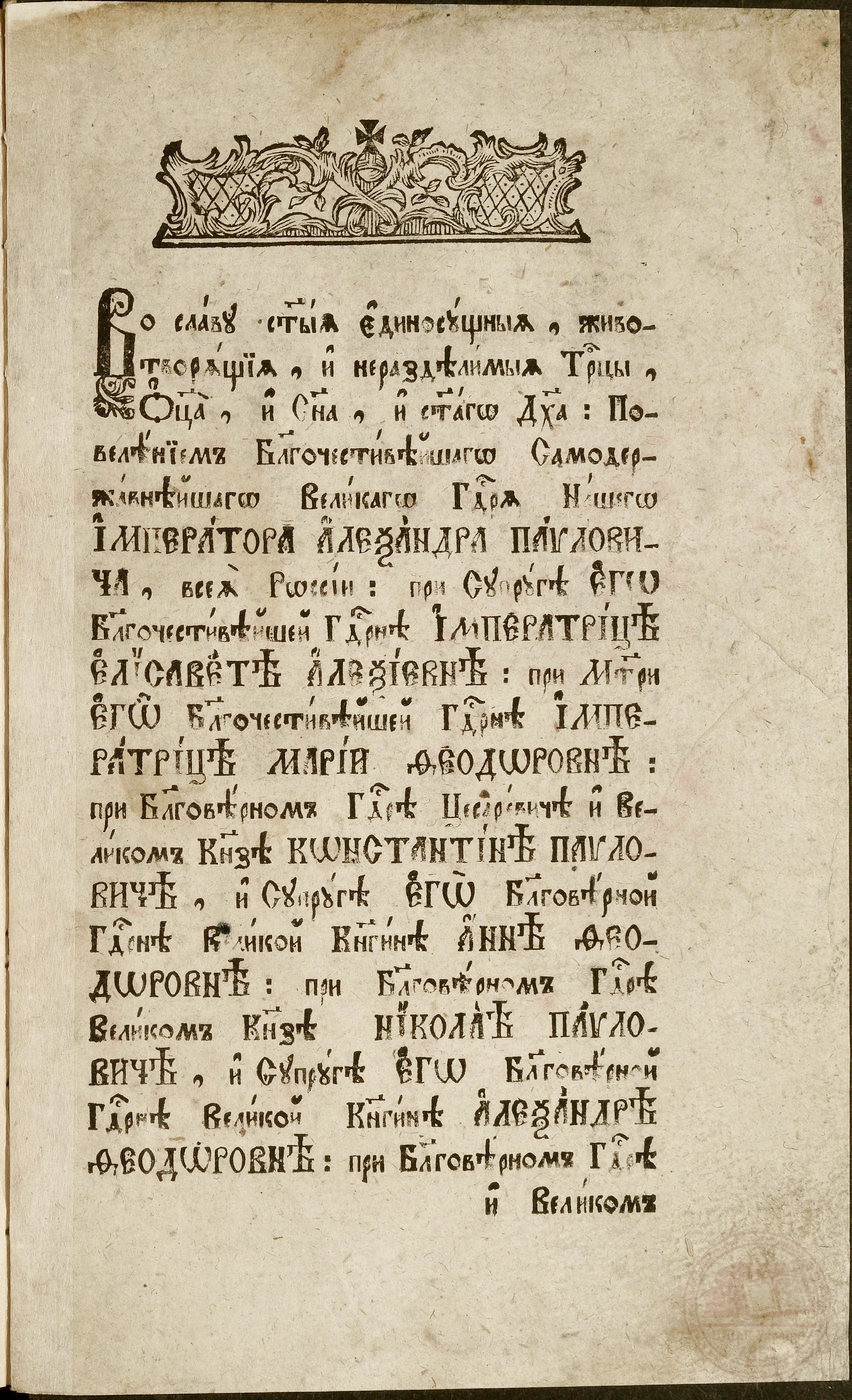 Во сла́вꙋ ст҃ы́ѧ є҆диносꙋ́щныѧ, живо-
творѧ́щїѧ, и҆ нераздѣли́мыѧ Трⷪ҇цы,
Ѻ҆ц҃а̀, и҆ Сн҃а, и҆ ст҃а́гѡ Дх҃а: По-
велѣ́нїемъ Бл҃гочести́вѣйшагѡ Самодер-
жа́внѣйшагѡ Вели́кагѡ Гдⷭ҇рѧ На́шегѡ
І҆МПЕРА́ТОРА А҆ЛЕѮА́НДРА ПА́ѴЛОВИ-
ЧА, всеѧ̀ Рѡссі́и: при Сꙋпрꙋ́гѣ Є҆ГѠ̀
Бл҃гочести́вѣйшей Гдⷭ҇рнѣ І҆МПЕРАТРІ́ЦѢ
Є҆ЛІСАВЕ́ТѢ А҆ЛЕѮІ́ЕВНѢ: при Мт҃ри
Є҆ГѠ̀ Бл҃гочести́вѣйшей Гдⷭ҇рнѣ І҆МПЕ-
РАТРІ́ЦѢ МАРІ́И ѲЕОДѠРОВНѢ:
при Бл҃говѣ́рномъ Гдⷭ҇рѣ Цесаре́вичѣ и҆ Ве-
ли́комъ Кн҃зѣ КѠНСТАНТІ́НѢ ПА́ѴЛО-
ВИЧѢ, и҆ Сꙋпрꙋ́гѣ Є҆ГѠ̀ Бл҃говѣ́рной
Гдⷭ҇рнѣ Вели́кой Кн҃ги́нѣ А҆́ННѢ ѲЕО-
ДѠРОВНѢ: при Бл҃говѣ́рномъ Гдⷭ҇рѣ
Вели́комъ Кн҃зѣ НІКОЛА́Ѣ ПА́ѴЛО-
ВИЧѢ, и҆ Сꙋпрꙋ́гѣ Є҆ГѠ Бл҃говѣ́рной
Гдⷭ҇рнѣ Вели́кой Кн҃ги́нѣ А҆ЛЕѮА́НДРѢ
ѲЕОДѠ́РОВНѢ: при Бл҃говѣ́рномъ Гдⷭ҇рѣ
и҆ Вели́комъ